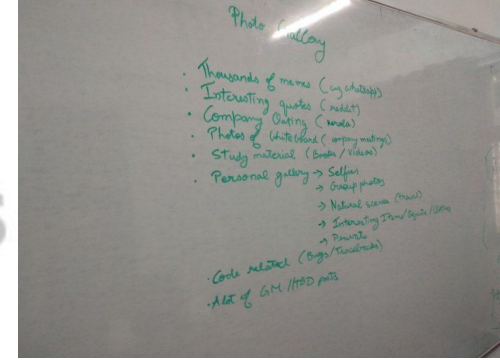 Photo Gallery
• Thousands of memes (eg whatsapp)
• Interesting quotes (reddit)
• Company Outing (kerala)
• Photos of whiteboard (company meetings)
• Study material (Books / Videos)
• Personal gallery → Selfies
→ Group photos
→ Natural scenes (travel)
→ Interesting Items/
→ Private
• Code related (Bugs/Tracebacks)
• A lot of GM/HBD pots